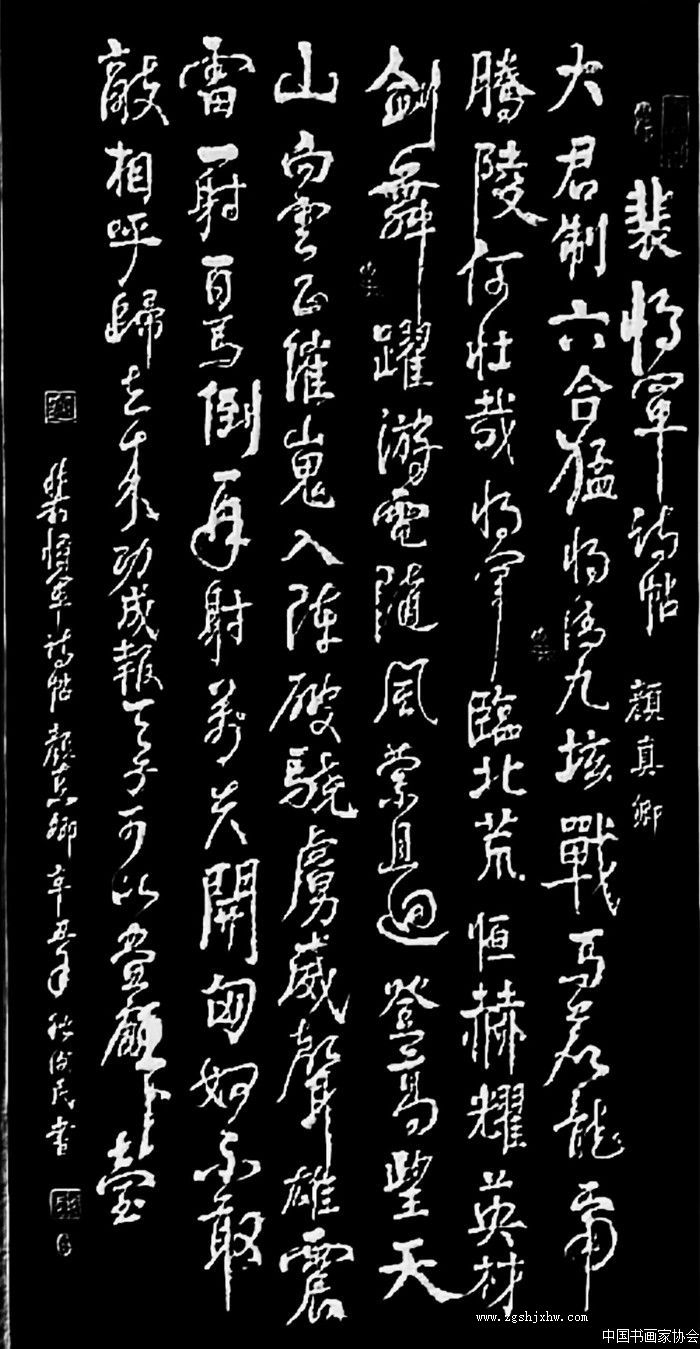 裴將軍詩帖 顏真卿
大君制六合猛將清九垓戰馬若龍虎
騰陵何壯哉將軍臨北荒恒赫耀英材
劍舞躍游電隨風縈且迴登高望天
山白雲正嵬入陣破驍虜威聲雄震
雷一射百馬倒再射萬夫開匈奴不敢
敵相呼歸去來功成報天子可以畫麟臺
裴將軍詩帖 顏真卿 辛丑年 民書
www.zgshjxhw.com
中国书画家协会